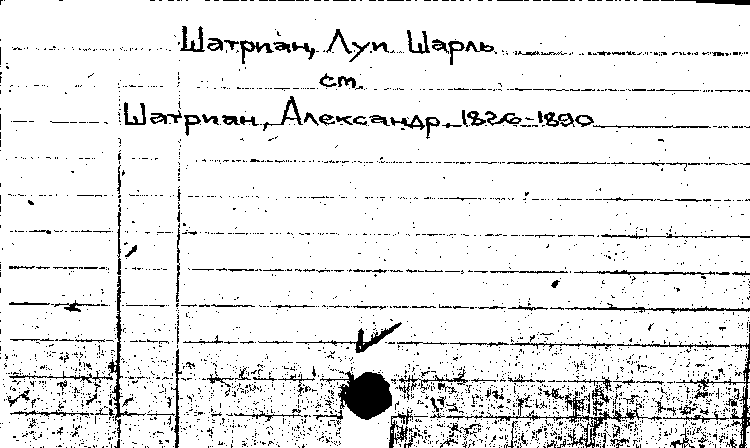 Шатриан, Луи Шарль
ст.
Шатриан, Александр, 1826-1890